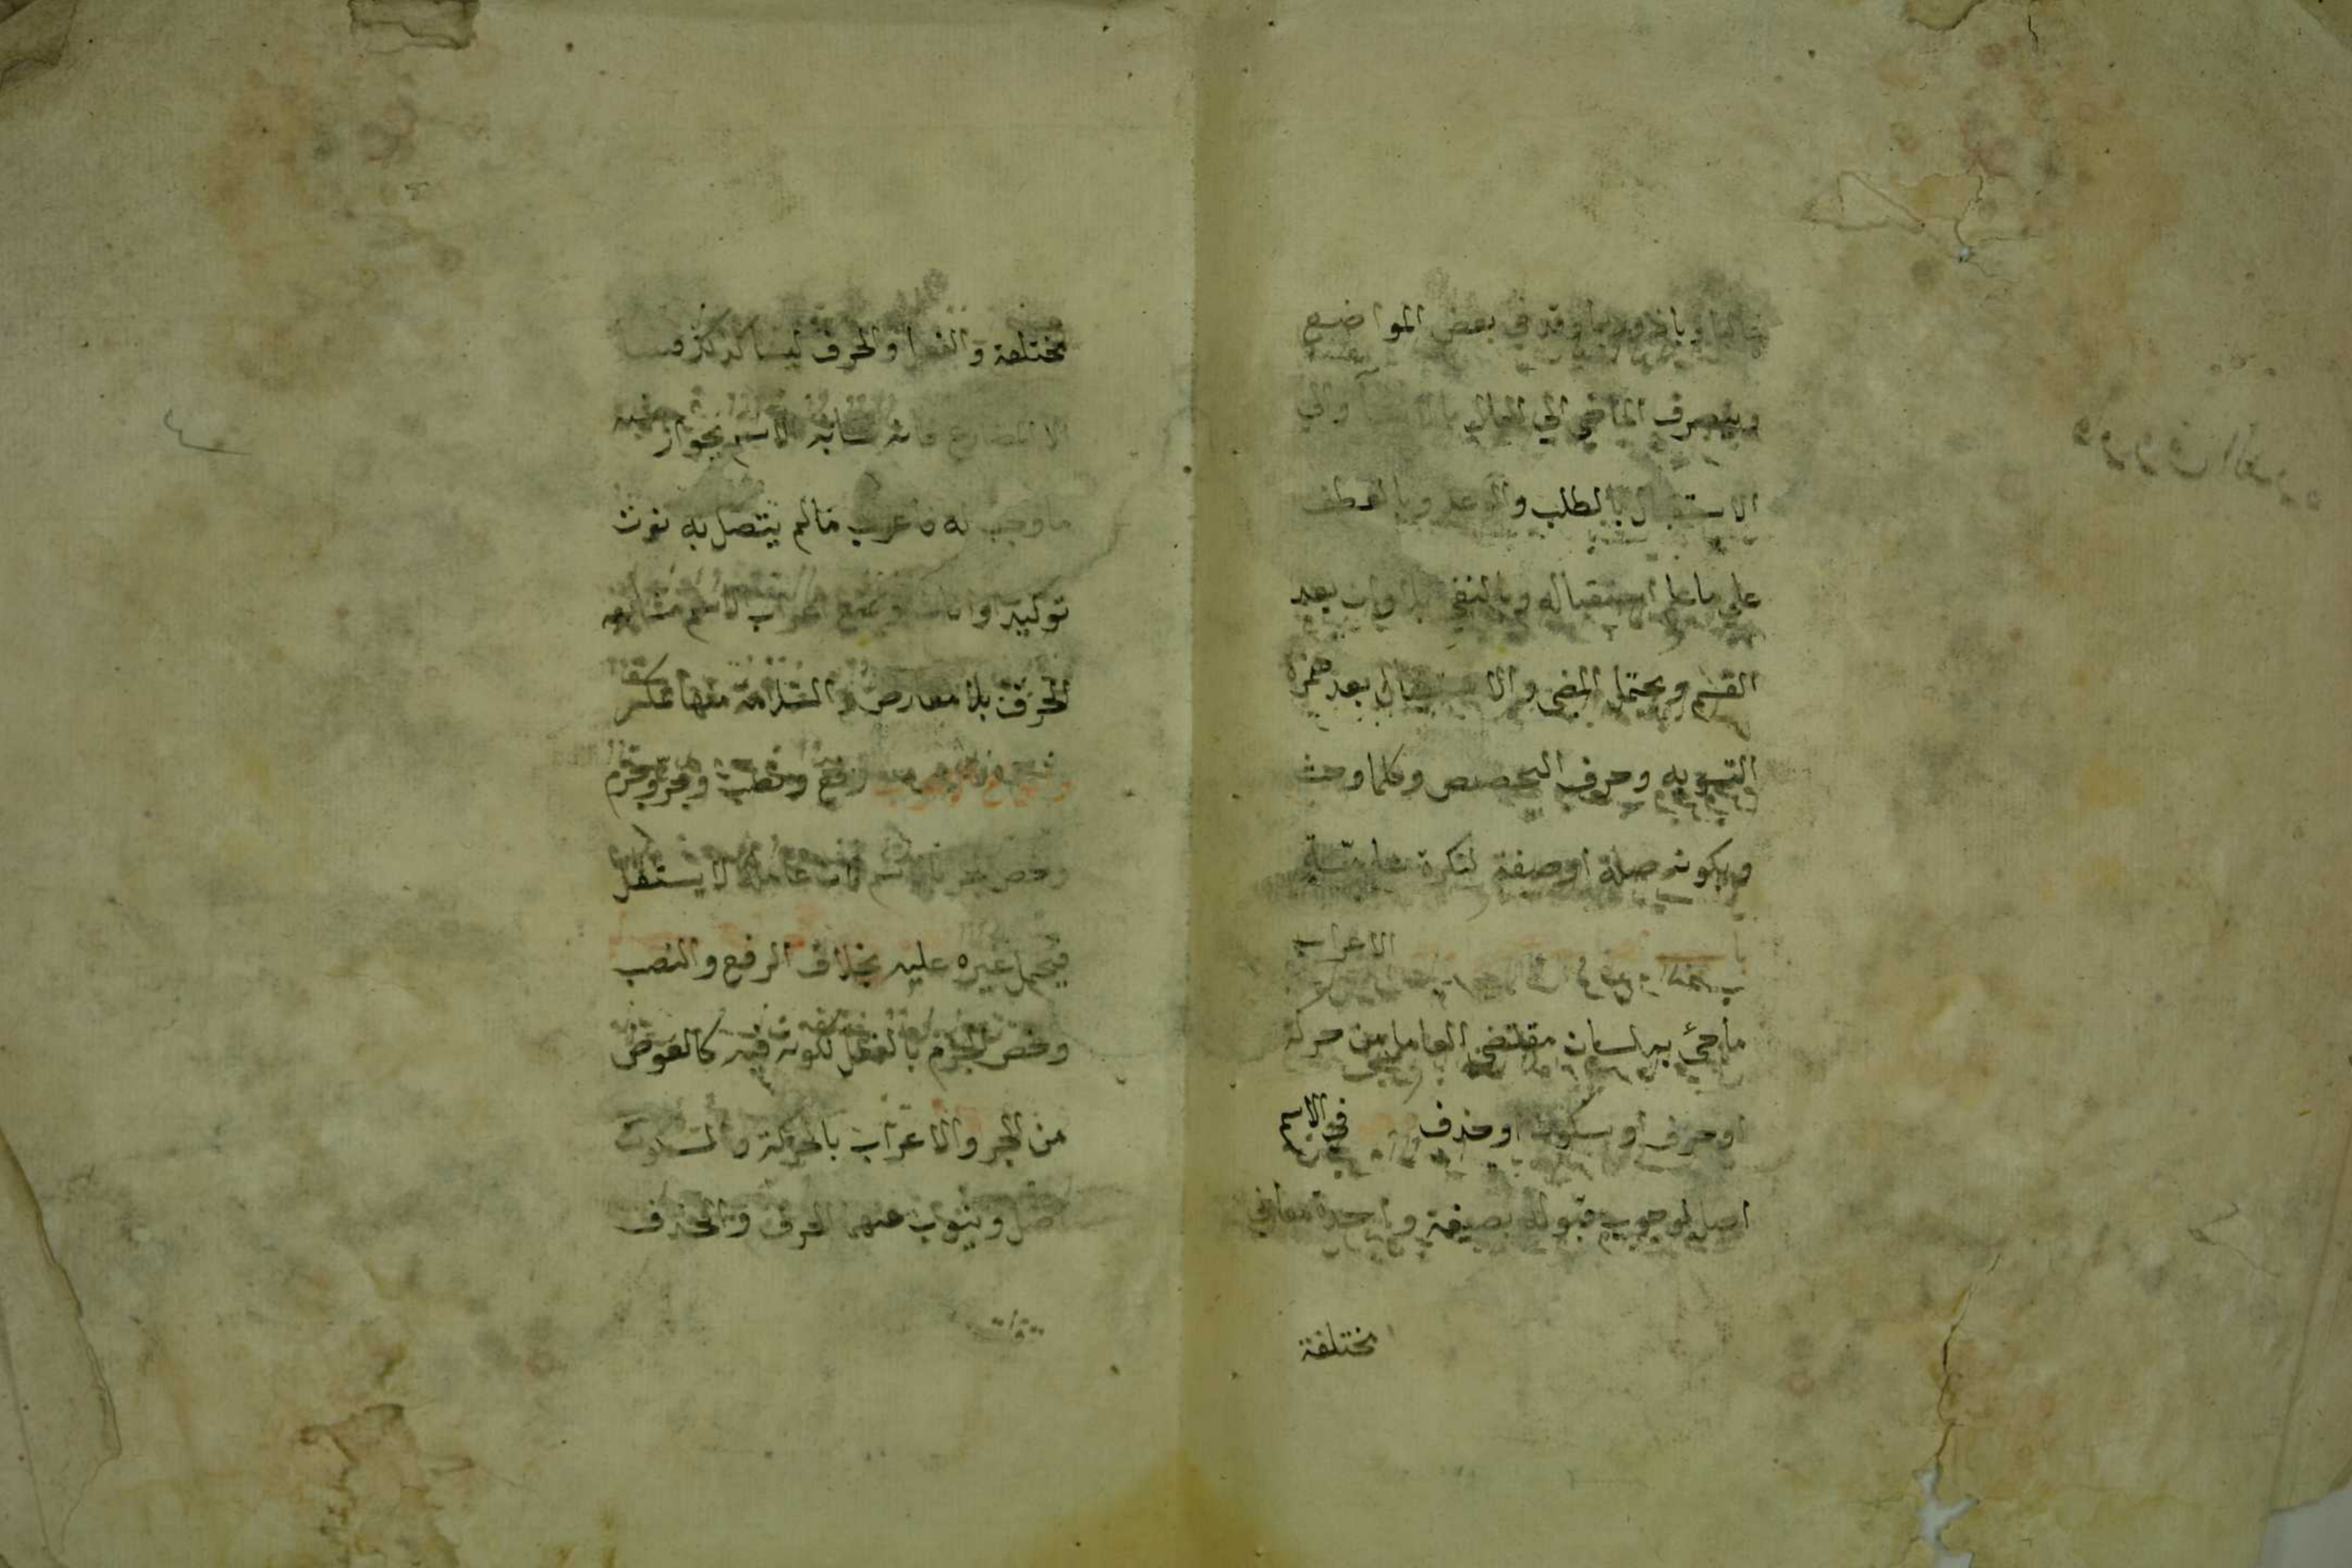 وباذ وربما وقد في بعض المواضع
وينصرف الماضي الي الحال بالانشآ والي
الاستقبال بالطلب والوعد وبالعطف
علي ما علم استقباله وبالنفي بلا وان بعد
القسم ويحتمل المضي والاستقبال بعد همزة
التسويه وحرف التحضيض وكلما وحيث
وبكونه صلة او صفة لنكرة عامة
باب الاعراب
ما جئ به لبيان مقتضي العامل من حركة
او حرف او سكون او حذف في الاسم
اصل لوجوب قبوله بصيغة واحدة معاني
مختلفة
مختلفة والفعل والحرف ليسا كذلك
الا المضارع فانه شابه الاسم بجواز شبه
ما وجب له فاعرب مالم يتصل به نون
توكيد او اناث ويمنع اعراب الاسم مشابهة
الحرف بلا معارض والسلامة منها تمكن
وانواع الاعراب رفع ونصب وجر وجزم
وخص الجر بالاسم لان عامله لا يستقل
فيحمل غيره عليه بخلاف الرفع والنصب
وخص الجزم بالفعل لكونه فيه كالعوض
من الجر والاعراب بالحركة والسكون
اصل وينوب عنهما الحرف والحذف